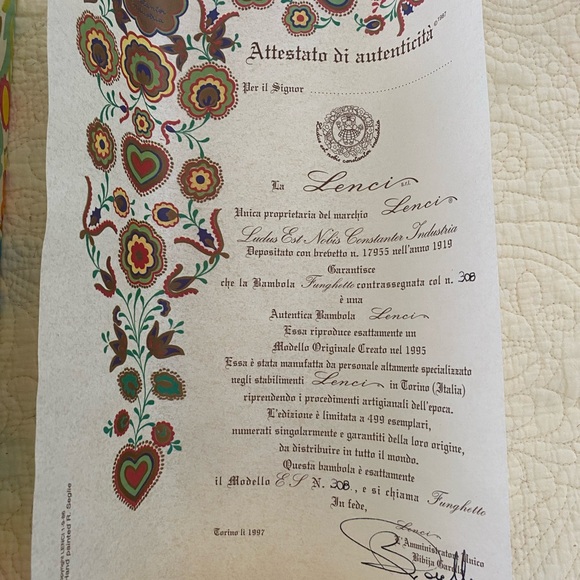 Attestato di autenticità
©1987
Per il Signor
La Lenci s.r.l.
Unica proprietaria del marchio Lenci
Ludus Est Nobis Constanter Industria
Depositato con brebetto n. 17955 nell'anno 1919
Garantisce
che la Bambola Funghetto contrassegnata col n. 308
è una
Autentica Bambola Lenci
Essa riproduce esattamente un
Modello Originale Creato nel 1995
Essa è stata manufatta da personale altamente specializzato
negli stabilimenti Lenci in Torino (Italia)
riprendendo i procedimenti artigianali dell'epoca.
L'edizione è limitata a 499 esemplari,
numerati singolarmente e garantiti della loro origine,
da distribuire in tutto il mondo.
Questa bambola è esattamente
il Modello ES N. 308, e si chiama Funghetto
In fede,
Lenci
L'Amministratore Unico
Bibija
Torino li 1997
Hand painted R. Seglie